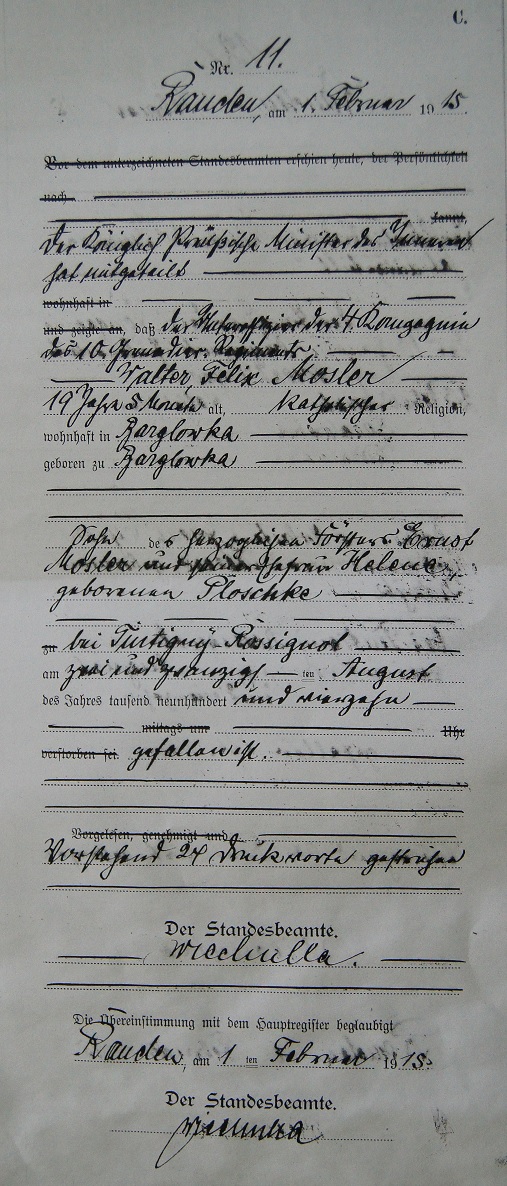 C.
Nr. 11.
Rauden, am 1. Februar 1915.
Vor dem unterzeichneten Standesbeamten erschien heute, der Persönlichkeit
nach
kannt,
Der Königlich Preußische Minister des Innern
hat mitgeteilt
wohnhaft in
und zeigte an, daß der Unteroffizier der 4. Kompagnie
des 10. Grenadier-Regiments
Walter Felix Mosler
19 Jahre 5 Monate alt, katholischer Religion,
wohnhaft in Barglowka
geboren zu Barglowka
Sohn des herzoglichen Försters Ernst
Mosler und seiner Ehefrau Helene,
geborenen Ploschke
zu bei Tintigny-Rossignol
am zwei und zwanzigsten August
des Jahres tausend neunhundert und vierzehn
mittags um Uhr
verstorben sei. gefallen ist.
Vorgelesen, genehmigt und
Vorstehend 24 Druckworte gestrichen
Der Standesbeamte.
Die Übereinstimmung mit dem Hauptregister beglaubigt
Rauden, am 1ten Februar 1915.
Der Standesbeamte.